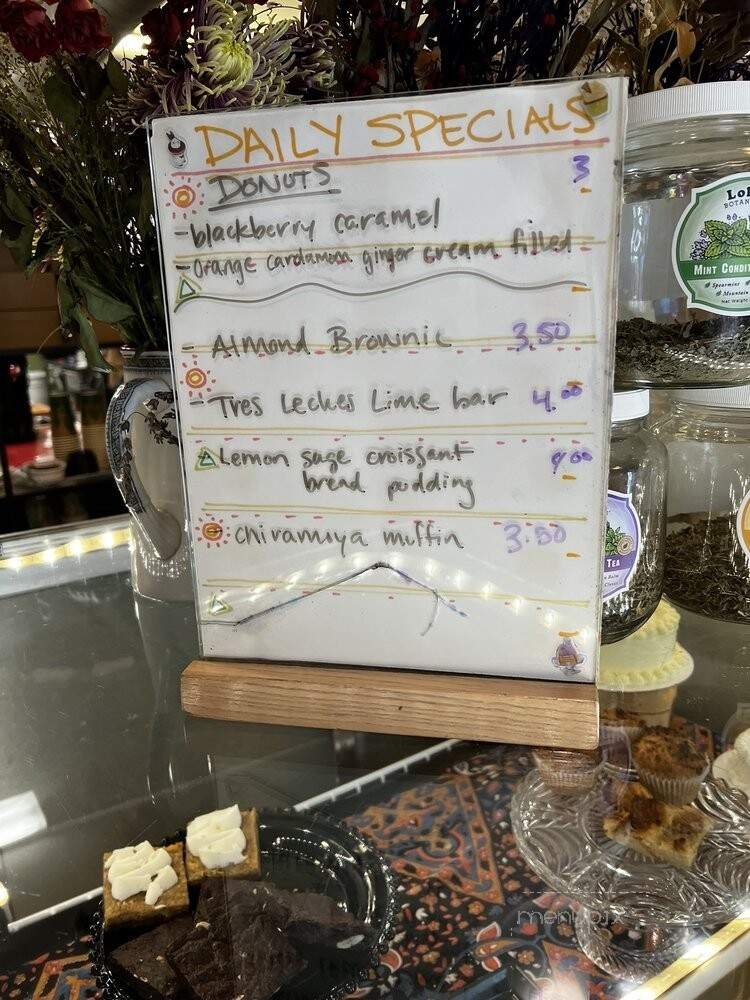 DAILY SPECIALS
DONUTS 3
- blackberry caramel
- Orange cardamom ginger cream filled
- Almond Brownie 3.50
- Tres Leches Lime bar 4.00
Lemon sage croissant 4.00
bread pudding
chiramoya muffin 3.50
BOTAN
MINT CONDI
Spearmint
Mountain
Net Weight
TEA
menupix